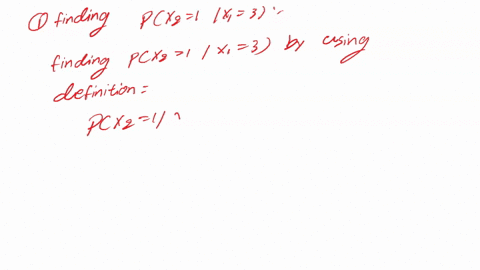 ① finding P(X2=1 / X1=3) :-
finding P(X2=1 / X1=3) by using
definition =
P(X2=1/